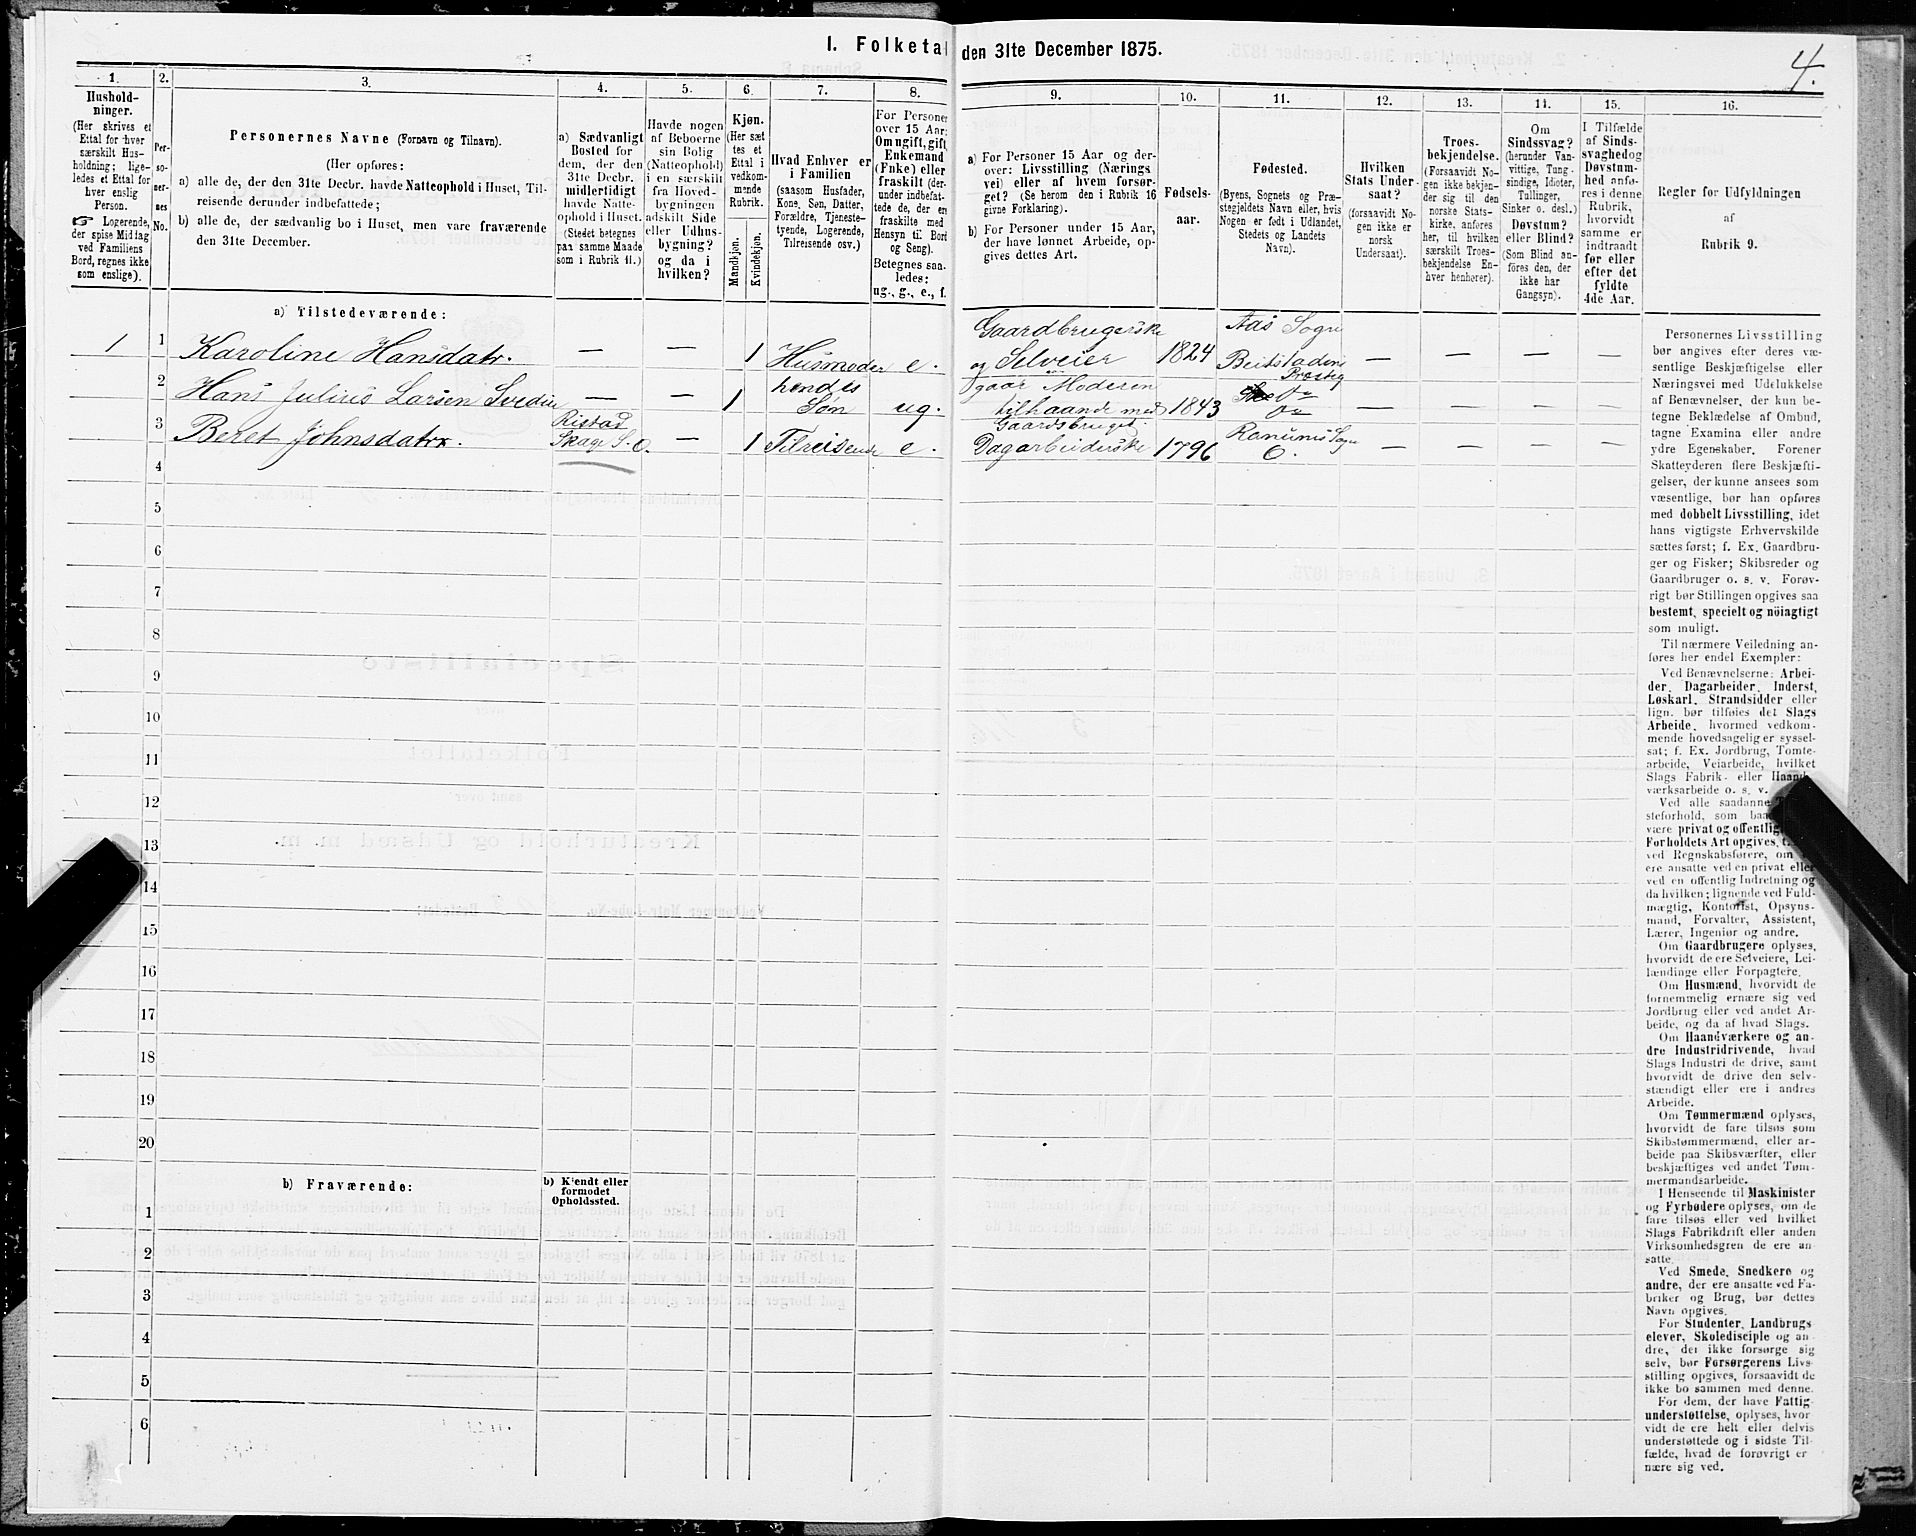 I. Folketal den 31te December 1875.
4.
1.
Husholdninger.
(Her skrives et
Ettal for hver
særskilt Husholdning;
ligeledes et Ettal for
hver enslig
Person.
☞ Logerende,
der spise Middag
ved Familiens
Bord, regnes ikke
som enslige).
2.
Personernes
No.
3.
Personernes Navne (Fornavn og Tilnavn).
(Her opføres:
a) alle de, der den 31te Decbr. havde Natteophold i Huset, Tilreisende derunder indbefattede;
b) alle de, der sædvanlig bo i Huset, men vare fraværende
den 31te December.
4.
a) Sædvanligt
Bosted for
dem, der den
31te Decbr.
midlertidigt
havde Natteophold
i Huset.
(Stedet betegnes
paa samme Maade
som i Rubrik 11.)
5.
Havde nogen
af Beboerne
sin Bolig
(Natteophold)
i en særskilt
fra Hovedbygningen
adskilt Side
eller Udhusbygning?
og da i
hvilken?
6.
Kjøn.
(Her sættes et
Ettal i
vedkommende
Rubrik.
Mandkjøn.
Kvindekjøn.
7.
Hvad Enhver er
i Familien
(saasom Husfader,
Kone, Søn, Datter,
Forældre, Tjenestetyende, Logerende,
Tilreisende osv.)
8.
For Personer
over 15 Aar:
Om ugift, gift,
Enkemand
(Enke) eller
fraskilt (derunder indbefattede de, der ere
fraskilte med
Hensyn til Bord
og Seng).
Betegnes saaledes:
ug., g., e., f.
9.
a) For Personer 15 Aar og derover: Livsstilling (Næringsvei) eller af hvem forsørget? (Se herom den i Rubrik 16
givne Forklaring).
b) For Personer under 15 Aar,
der have lønnet Arbeide, opgives dettes Art.
10.
Fødselsaar.
11.
Fødested.
(Byens, Sognets og Præstegjeldets Navn eller, hvis
Nogen er født i Udlandet,
Stedets og Landets
Navn).
12.
Hvilken
Stats Undersaat?
(forsaavidt Nogen ikke er
norsk
Undersaat).
13.
Troesbekjendelse.
(Forsaavidt Nogen ikke bekjender sig til den
norske Statskirke, anføres
her, til hvilken
særskilt Troesbekjendelse Enhver henhører).
14.
Om
Sindssvag?
(herunder Vanvittige, Tungsindige, Idioter,
Tullinger,
Sinker o. desl.)
Døvstum?
eller Blind?
(Som Blind anføres den, der
ikke har
Gangsyn).
15.
I Tilfælde
af Sindssvaghed og
Døvstumhed anføres i denne
Rubrik,
hvorvidt
samme er
indtraadt
før eller
efter det
fyldte
4de Aar.
16.
Regler for Udfyldningen
af
Rubrik 9.
a) Tilstedeværende:
1 1 Karoline Hansdatr. — — 1 Husmoder e. Gaardbrugerske og Selveier 1824 Aas Sogn Beitstadens Præsteg — — — —
2 Hans Julius Larsen — — 1 hendes Søn ug. gaar Moderen tilhaande med Gaardsbruget. 1843 Do Do — — — —
3 Beret Johnsdatr. Ristad Skage S. O. — 1 Tilreisende e. Dagarbeiderske 1796 Ranums Sogn O. — — — —
4
5
6
7
8
9
10
11
12
13
14
15
16
17
18
19
20
b) Fraværende:
b) Kjendt eller
formodet
Opholdssted.
1
2
3
4
5
6
Personernes Livsstilling
bør angives efter deres væsentlige Beskjæftigelse eller
Næringsvei med Udelukkelse
af Benævnelser, der kun betegne Beklædelse af Ombud,
tagne Examina eller andre
ydre Egenskaber. Forener
Skatteyderen flere Beskjæftigelser, der kunne ansees som
væsentlige, bør han opføres
med dobbelt Livsstilling, idet
hans vigtigste Erhvervskilde
sættes først; f. Ex. Gaardbruger og Fisker; Skibsreder og
Gaardbruger o. s. v. Forøvrigt bør Stillingen opgives saa
bestemt, specielt og nöiagtigt
som muligt.
Til nærmere Veiledning anføres her endel Exempler:
Ved Benævnelserne: Arbeider, Dagarbeider, Inderst,
Løskarl, Strandsidder eller
lign. bør tilføies det Slags
Arbeide, hvormed vedkommende hovedsagelig er sysselsat; f. Ex. Jordbrug, Tomtearbeide, Veiarbeide, hvilket
Slags Fabrik- eller Haandværksarbeide o. s. v.
Ved alle saadanne
steforhold, som
være privat og offentlig,
Forholdets Art opgives,
ved Regnskabsførere, om
ere ansatte ved en privat eller
ved en offentlig Indretning og
da hvilken; lignende ved Fuldmægtig, Kontorist, Opsynsmand, Forvalter, Assistent,
Lærer, Ingeniør og andre.
Om Gaardbrugere oplyses,
hvorvidt de ere Selveiere, Leilændinge eller Forpagtere.
Om Husmænd, hvorvidt de
fornemmelig ernære sig ved
Jordbrug eller ved andet Arbeide, og da af hvad Slags.
Om Haandværkere og andre Industridrivende, hvad
Slags Industri de drive, samt
hvorvidt de drive den selvstændigt eller ere i andres
Arbeide.
Om Tømmermænd oplyses,
hvorvidt de fare tilsøs som
Skibstømmermænd, eller arbeide paa Skibsværfter, eller
beskjæftiges ved andet Tømmermandsarbeide.
I Henseende til Maskinister
og Fyrbødere oplyses, om de
fare tilsøs eller ved hvilket
Slags Fabrikdrift eller anden
Virksomhedsgren de ere ansatte.
Ved Smede, Snedkere og
andre, der ere ansatte ved Fabriker og Brug, bør dettes
Navn opgives.
For Studenter, Landbrugselever, Skoledisciple og andre, der ikke forsørge sig
selv, bør Forsørgerens Livsstilling opgives, forsaavidt de
ikke bo sammen med denne.
For dem, der have Fattigunderstøttelse, oplyses, hvorvidt de ere helt eller delvis
understøttede og i sidste Tilfælde, hvad de forøvrigt ernære sig ved.